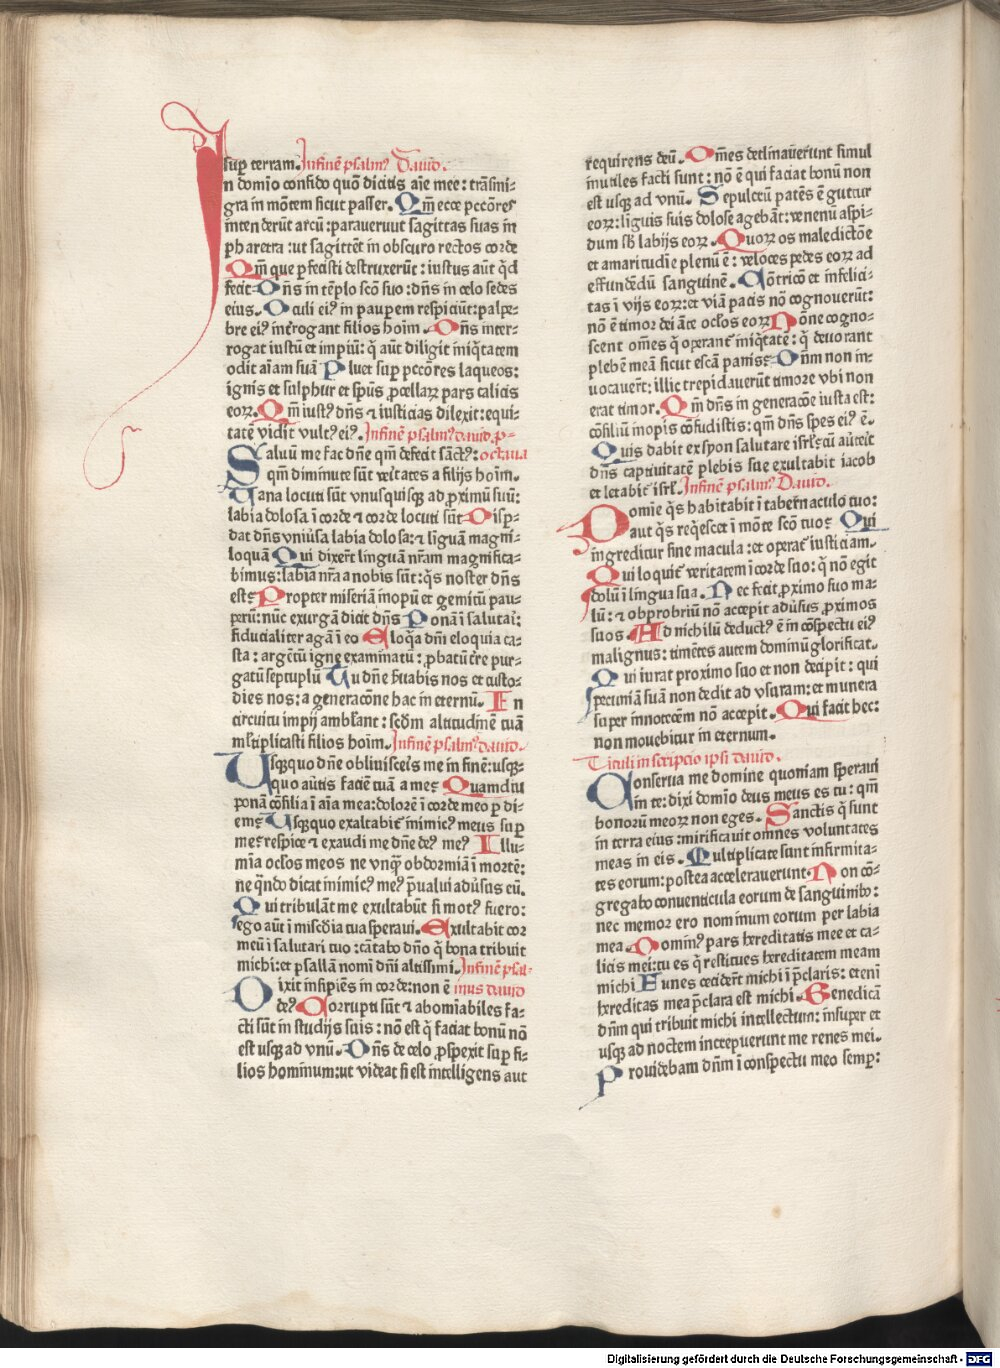 sup̱ terram. Infinē psalmꝰ Dauid.
In domīo confido quō dicitis aīe mee: trāsmi-
gra in mōtem sicut passer. Qm̄ ecce pccōres
intenderūt arcū: parauerunt sagittas suas in
pharetra: ut sagittēt in obscuro rectos corde
Qm̄ que p̱fecisti destruxerūt: iustus aūt qͥd
fecit. Dn̄s in tēplo scō suo: dn̄s in celo sedes
eius. Oculi eiꝰ in paup̱em respiciūt: palpe-
bre eiꝰ īterogant filios hoīm. Dn̄s inter-
rogat iustū et impiū: q̄ aūt diligit iniq̄tatem
odit aīam suā Pluet sup̱ pccōres laqueos:
ignis et sulphur et spūs ꝓcellaꝝ pars calicis
eoꝝ. Qm̄ iustꝰ dn̄s ⁊ iusticias dilexit: equi-
tatē vidit vultꝰ eiꝰ. Infinē psalmꝰ dauid p-
Saluū me fac dn̄e qm̄ defecit sāctꝰ: octaua
qm̄ diminute sūt veītates a filijs hoīm.
Uana locuti sūt vnusquisqꝫ ad ꝓximū suū:
labia dolosa ī corde ⁊ corde locuti sūt. Disp̱-
dat dn̄s vniūsa labia dolosa: ⁊ līguā magni-
loquā Qui dixerūt linguam nr̄am magnifica-
bimus: labia nr̄a a nobis sūt: qͥs noster dn̄s
est Propter miseriā inopū et gemitū pau-
perū: nūc exurgā dicit dn̄s Ponā ī salutaī:
fiducialiter agā ī eo Eloq̄a dn̄i eloquia ca-
sta: argētū igne examinatū: ꝓbatū tr̄e pur-
gatū septuplū Tu dn̄e s̄uabis nos et custo-
dies nos: a generacōne hac in eternū. In
circuitu impij ambl̄ant: scdm̄ altitudinē tuā
ml̄tiplicasti filios hoīm. Infinē psalmꝰ dauid.
Usqꝫquo dn̄e obliuisceīs me in finē: usqꝫ-
quo aūtis faciē tuā a me Quamdiu
ponā cōsilia ī aīa mea: dolorē ī corde meo p̱ di-
em Usqꝫquo exaltabit̄ inimicꝰ meus sup̱
me respice ⁊ exaudi me dn̄e deꝰ meꝰ Illu-
mīa oc̄los meos ne vnqͣ obdormiā ī mortē:
ne q̄ndo dicat inimicꝰ meꝰ p̱ualui aduersus eū.
Qui tribulāt me exultabūt si motꝰ fuero:
ego aūt ī misc̄dia tua speraui. Exultabit cor
meū ī salutari tuo: cātabo dn̄o q̄ bona tribuit
michi: et psallā nomī dn̄i altissimi. Infinē psal-
Dixit insipiēs in corde: non ē mus dauid
deꝰ Corrupti sūt ⁊ abomīabiles fa-
cti sūt in studijs suis: nō est q̄ faciat bonū nō
est usqꝫ ad vnū. Dn̄s de celo ꝓspexit sup̱ fi-
lios hominum: ut videat si est intelligens aut
requirens deū. Om̄es declinauerunt simul
inutiles facti sunt: nō ē qui faciat bonū non
est usqꝫ ad vnū. Sepulcrū patēs ē guttur
eoꝝ: linguis suis dolose agebāt: venenū aspi-
dum sb̄ labijs eoꝝ. Quoꝝ os maledictōe
et amaritudīe plenū ē: veloces pedes eoꝝ ad
effundēdū sanguinē. Cōtricō et infelici-
tas ī vijs eoꝝ: et viā pacis nō cognouerūt:
nō ē timor dei āte oc̄los eoꝝ Nōne cogno-
scent om̄es q̄ operant̄ iniq̄tatē: q̄ deuorant
plebē meā sicut escā panis Dn̄m non in-
uocauerūt: illic trepidauerūt timore vbi non
erat timor. Qm̄ dn̄s in generacōe iusta est:
cōsiliū inopis cōfudistis: qm̄ dn̄s spes eiꝰ ē.
Quis dabit ex syon salutare isrl̄: cū aūtēit
dn̄s captiuitatē plebis sue exultabit iacob
et letabit̄ isrl̄. Infinē psalmꝰ Dauid.
Domīe qͥs habitabit ī tabernaculo tuo:
aut qͥs reqͥescet ī mōte scō tuo Qui
ingreditur sine macula: et operat̄ iusticiam.
Qui loquit̄ veritatem ī corde suo: q̄ nō egit
dolū ī lingua sua. Nec fecit ꝓximo suo ma-
lū: ⁊ obprobriū nō accepit aduersus ꝓximos
suos. Ad nichilū deductꝰ ē in cōspectu eiꝰ
malignus: timētes autem dominū glorificat.
Qui iurat proximo suo et non decipit: qui
pecuniā suā non dedit ad vsuram: et munera
super innocētē nō accepit. Qui facit hec:
non mouebitur in eternum.
Tituli inscripcio ipsi dauid.
Conserua me domine quoniam speraui
in te: dixi domīo deus meus es tu: qm̄
bonorū meoꝝ non eges. Sanctis q̄ sunt
in terra eius: mirificauit omnes voluntates
meas in eis. Multiplicate sunt infirmita-
tes eorum: postea accelerauerunt. Non cō-
gregabo conuenticula eorum de sanguinibꝰ:
nec memor ero nominum eorum per labia
mea. Dominꝰ pars hereditatis mee et ca-
licis mei: tu es q̄ restitues hereditatem meam
michi Funes ceciderūt michi ī p̄claris: eteni
hereditas mea p̄clara est michi. Benedicā
dn̄m qui tribuit michi intellectum: insuper et
usqꝫ ad noctem increpuerunt me renes mei.
Prouidebam dn̄m ī conspectu meo semp̱:
Digitalisierung gefördert durch die Deutsche Forschungsgemeinschaft - DFG